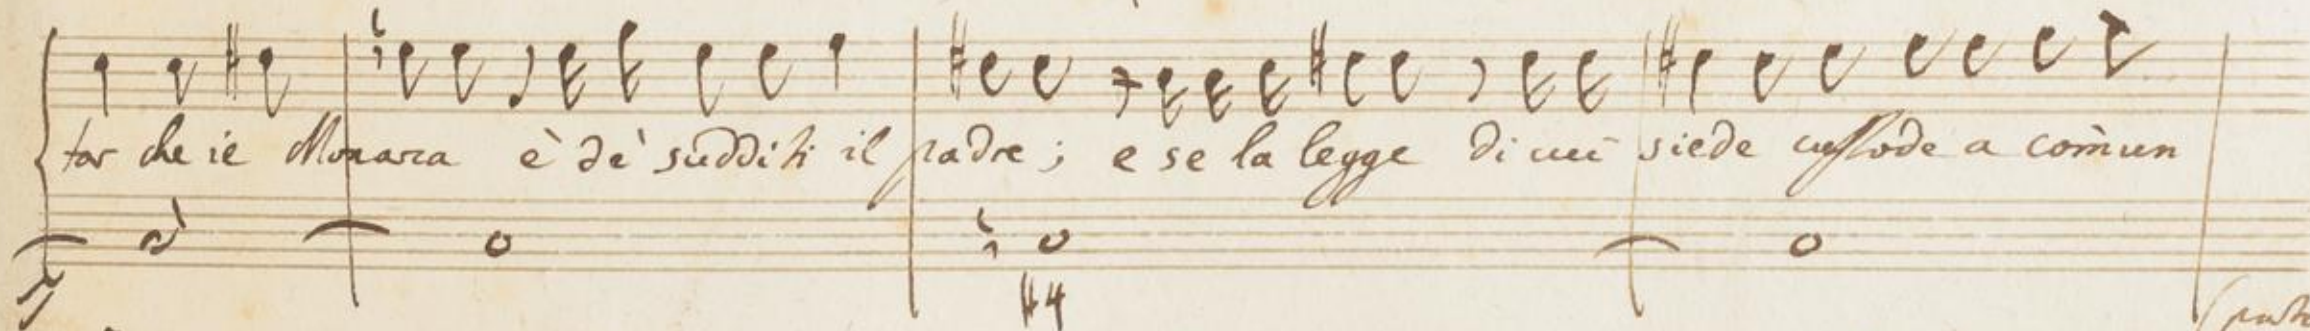 tar che ie Monarca è de' sudditi il padre; e se la legge di cui siede custode a comun
#4